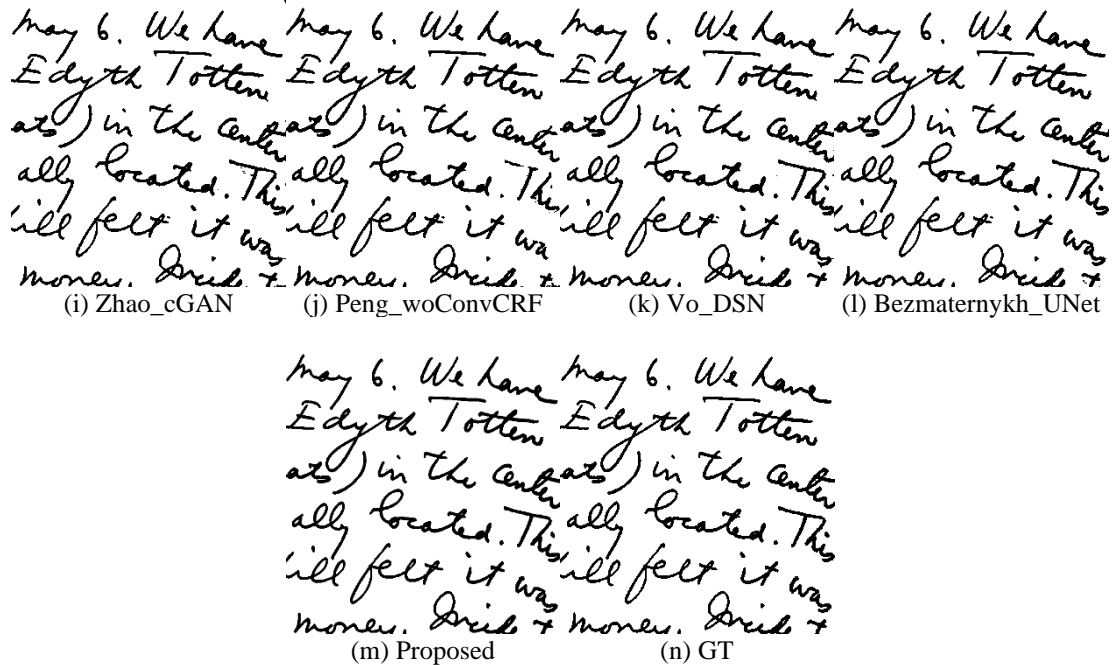 May 6. We have
Edyth Totten
ats) in the center
ally located. This
ill felt it was
money. Inside +
(i) Zhao_cGAN
May 6. We have
Edyth Totten
ats) in the center
ally located. This
ill felt it was
money. Inside +
(j) Peng_woConvCRF
May 6. We have
Edyth Totten
ats) in the center
ally located. This
ill felt it was
money. Inside +
(k) Vo_DSN
May 6. We have
Edyth Totten
ats) in the center
ally located. This
ill felt it was
money. Inside +
(l) Bezmaternykh_UNet
May 6. We have
Edyth Totten
ats) in the center
ally located. This
ill felt it was
money. Inside +
(m) Proposed
May 6. We have
Edyth Totten
ats) in the center
ally located. This
ill felt it was
money. Inside +
(n) GT